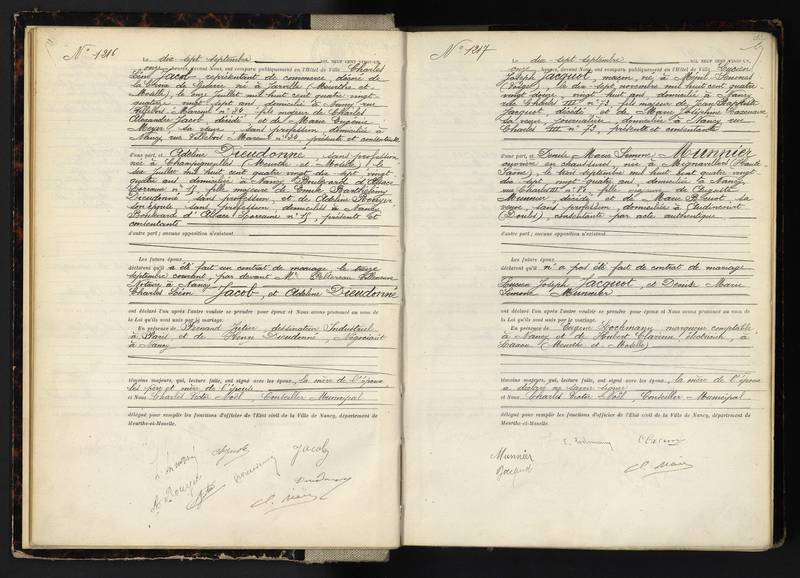 N° 1216
Le dix sept septembre mil neuf cent vingt un,
onze heures, devant Nous, ont comparu publiquement en l'Hôtel de Ville Charles
Léon Jacob, représentant de commerce, décoré de
la Croix de Guerre, né à Jarville (Meurthe et
Moselle) le onze Juillet mil huit cent quatre vingt
quatorze, vingt sept ans, domicilié à Nancy rue
n° 36, fils majeur de Charles
Alexandre Jacob décédé et de Marie Eugénie
Meyer sa veuve sans profession domiciliée à
Nancy, rue n° 36, présente et consentante
d'une part, et Adeline Dieudonné, sans profession
née à Champigneulles (Meurthe et Moselle) le
six Juillet mil huit cent quatre vingt dix sept vingt
quatre ans domiciliée à Nancy Boulevard d'Alsace
Lorraine n° 15, fille majeure de Emile Barthélemy
Dieudonné sans profession, et de Adeline
son épouse sans profession, domiciliés à Nancy,
Boulevard d'Alsace Lorraine n° 15, présents et
consentants
d'autre part; aucune opposition n'existant
Les futurs époux
déclarent qu'il a été fait un contrat de mariage le
septembre courant, par devant Me
Notaire à Nancy
Charles Léon Jacob, et Adeline Dieudonné
ont déclaré l'un après l'autre vouloir se prendre pour époux et Nous avons prononcé au nom de
la Loi qu'ils sont unis par le mariage.
En présence de Fernand dessinateur Industriel
à Paris et de Henry Dieudonné, Négociant
à Nancy
témoins majeurs, qui, lecture faite, ont signé avec les époux, la mère de l'époux
les père et mère de l'épouse
et Nous Charles Victor Noël, Conseiller Municipal
délégué pour remplir les fonctions d'officier de l'Etat civil de la Ville de Nancy, département de
Meurthe-et-Moselle.
Jacob
Dieudonné
N° 1217
Le dix sept septembre mil neuf cent vingt un,
onze heures, devant Nous, ont comparu publiquement en l'Hôtel de Ville Lucien
Joseph Jacquot, maçon, né à Ménil Senones
(Vosges), le dix sept novembre mil huit cent quatre
vingt douze, vingt huit ans, domicilié à Nancy,
rue Charles III n° 73 fils majeur de Jean Baptiste
Jacquot décédé et de Marie Joséphine
sa veuve, Journalière, domiciliée à Nancy rue
Charles III n° 73, présente et consentante
d'une part, et Denise Marie Simone Munnier
ouvrière en chaussures, née à Mignavillers (Haute
Saône), le mil huit cent quatre vingt
dix sept, vingt quatre ans, domiciliée à Nancy,
rue Charles III n° fille majeure de Auguste
Munnier décédé et de Marie sa
veuve, sans profession, domiciliée à Audincourt
(Doubs), consentante par acte authentique
d'autre part; aucune opposition n'existant
Les futurs époux
déclarent qu'il n'a pas été fait de contrat de mariage
Lucien Joseph Jacquot, et Denise Marie
Simone Munnier
ont déclaré l'un après l'autre vouloir se prendre pour époux et Nous avons prononcé au nom de
la Loi qu'ils sont unis par le mariage.
En présence de Eugène marqueur comptable
à Nancy et de Hubert à
(Meurthe et Moselle)
témoins majeurs, qui, lecture faite, ont signé avec les époux, la mère de l'époux
a déclaré ne savoir signer
et Nous Charles Victor Noël, Conseiller Municipal
délégué pour remplir les fonctions d'officier de l'Etat civil de la Ville de Nancy, département de
Meurthe-et-Moselle.
Munnier
Jacquot